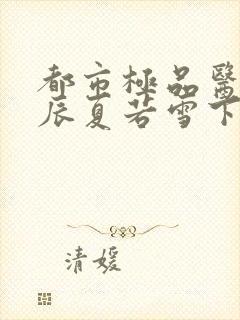 都市極品醫
辰夏若雪下
清媛